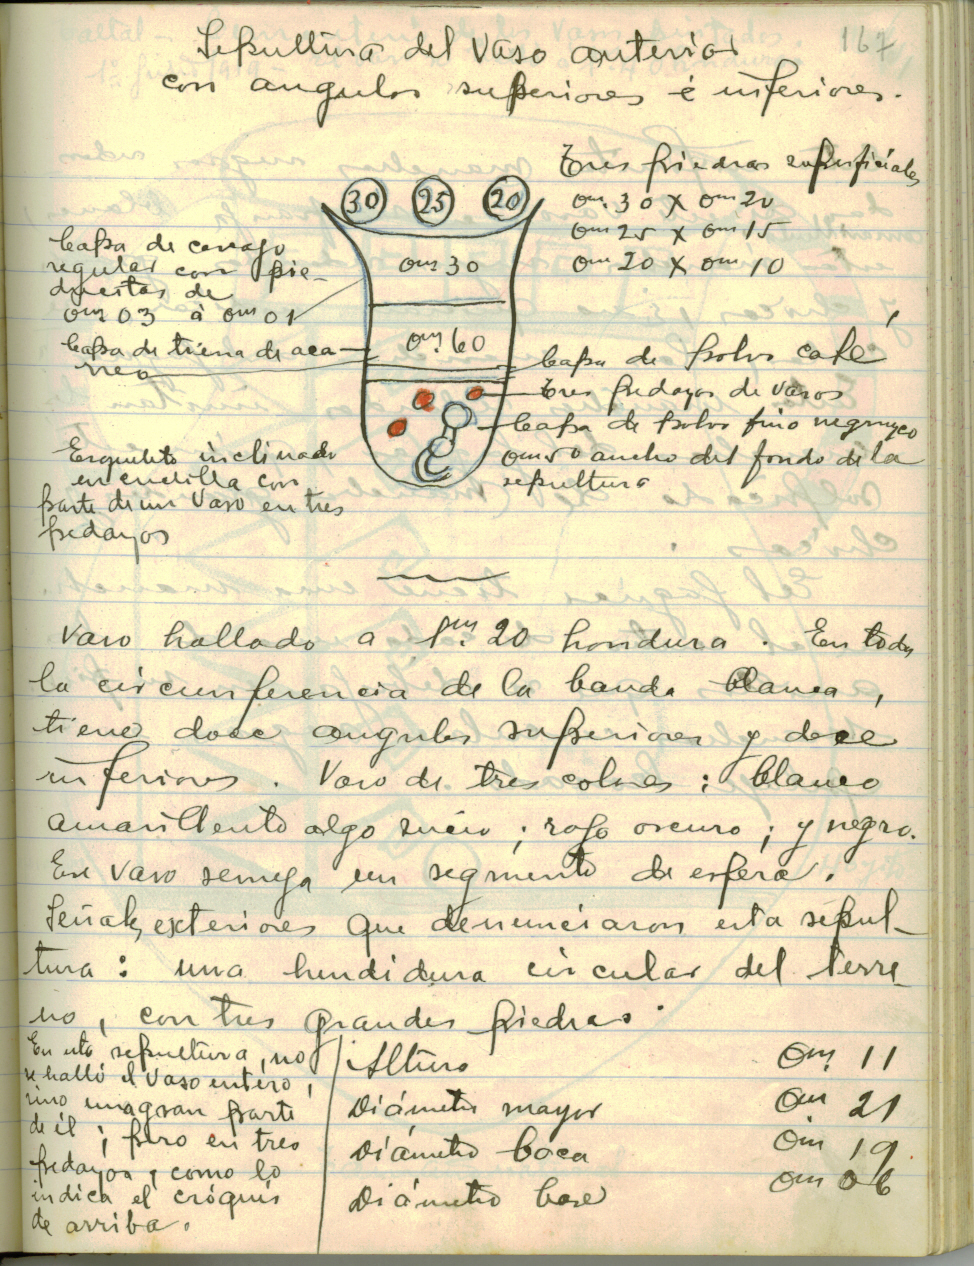 167
Sepultura del Vaso anterior
con angulos superiores é inferiores.
Tres piedras superficiales
0m.30 x 0m20
0m25 x 0m15
0m20 x 0m10
30 25 20
Capa de cascajo
regular con pie-
drecitas de
0m03 à 0m01
0m30
Capa de tierra de aca-
rreo
0m.60
Capa de polvo café
Tres pedazos de vasos
Capa de polvo fino negruzco
0m50 ancho del fondo de la
sepultura
Esqueleto inclinado
en cuclilla con
parte de un Vaso en tres
pedazos
Vaso hallado a 1m.20 hondura. En toda
la circunferencia de la banda blanca,
tiene doce angulos superiores y doce
inferiores. Vaso de tres colores: blanco
amarillento algo sucio; rojo oscuro; y negro.
Ese Vaso semeja un segmento de esfera.
Señales exteriores que denunciaron esta sepul-
tura: una hendidura circular del terre-
no, con tres grandes piedras.
En esta sepultura, no
se halló el Vaso entero,
sino una gran parte
de él; pero en tres
pedazos, como lo
indica el cróquis
de arriba.
Altura 0m. 11
Diámetro mayor 0m 21
Diámetro boca 0m 19.
Diámetro base 0m 06